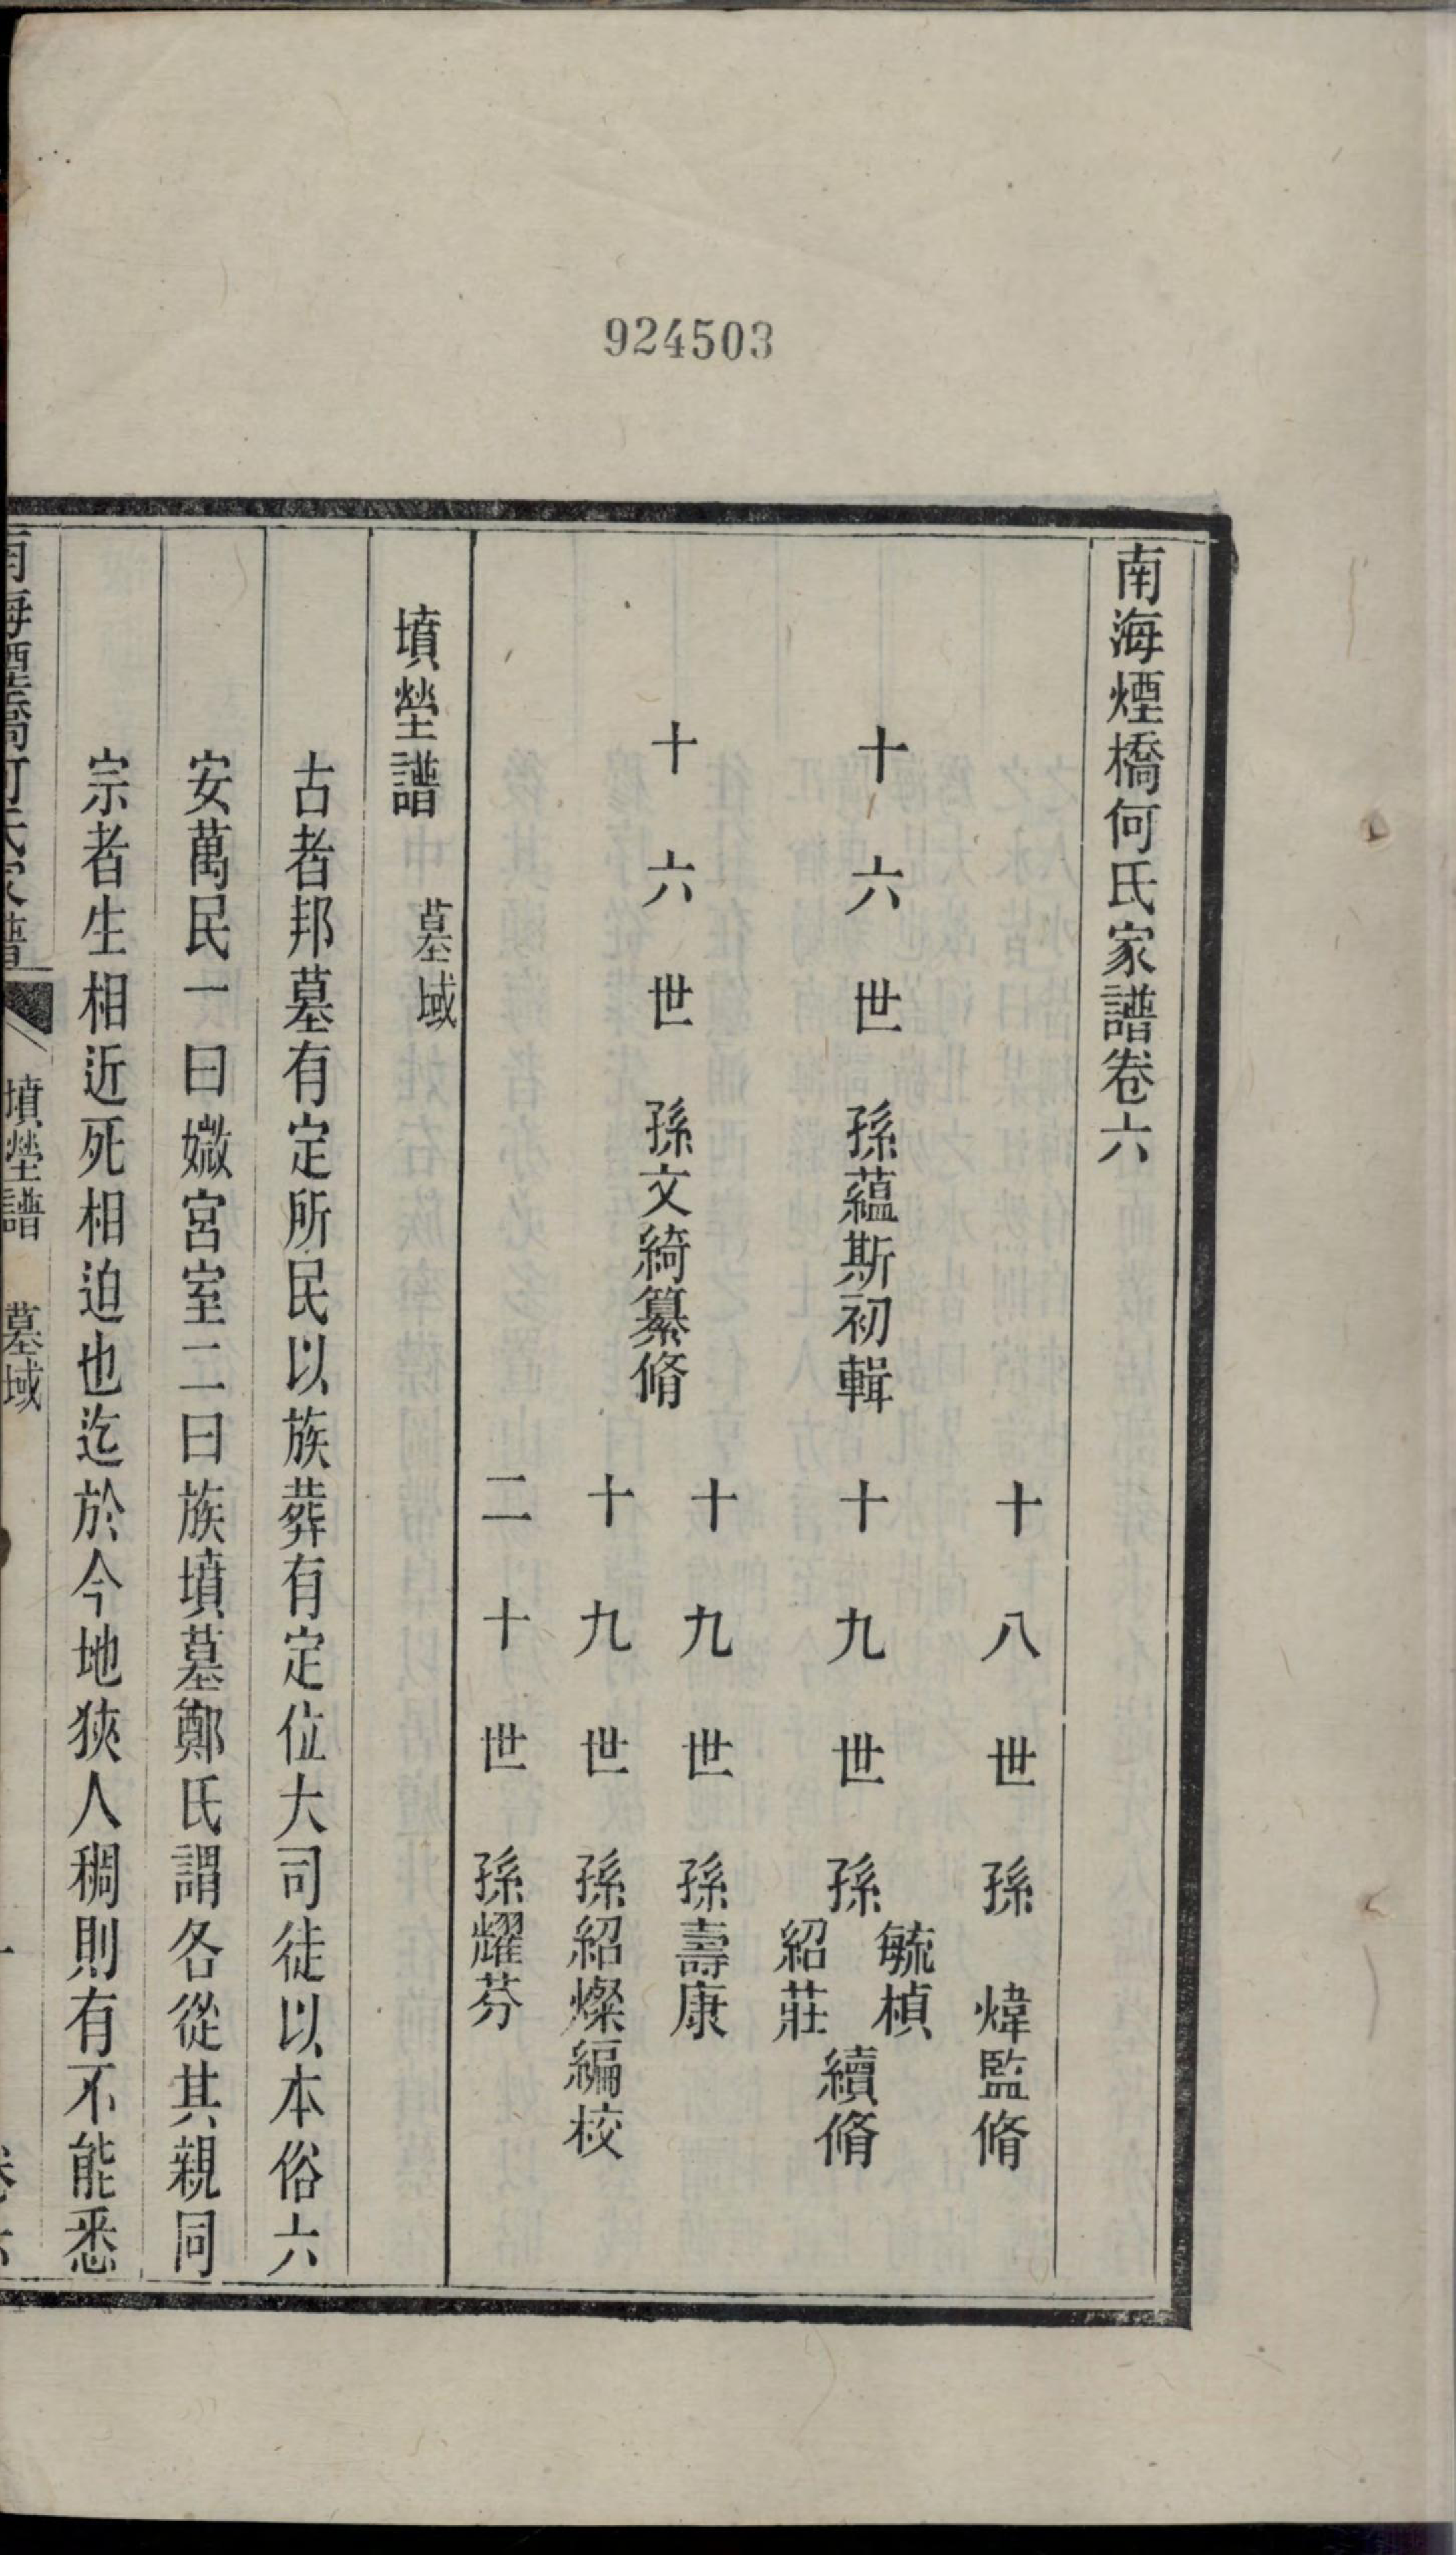 924503
南海煙橋何氏家譜卷六
十八世孫煒監脩
十六世孫蘊斯初輯
十九世孫毓楨紹莊續脩
十六世孫文綺纂脩
十九世孫壽康
十九世孫紹燦編校
二十世孫耀芬
墳塋譜 墓域
古者邦墓有定所民以族葬有定位大司徒以本俗六
安萬民一曰媺宮室二曰族墳墓鄭氏謂各從其親同
宗者生相近死相迫也迄於今地狹人稠則有不能悉
南海煙橋何氏家譜 墳塋譜 墓域 一 卷六